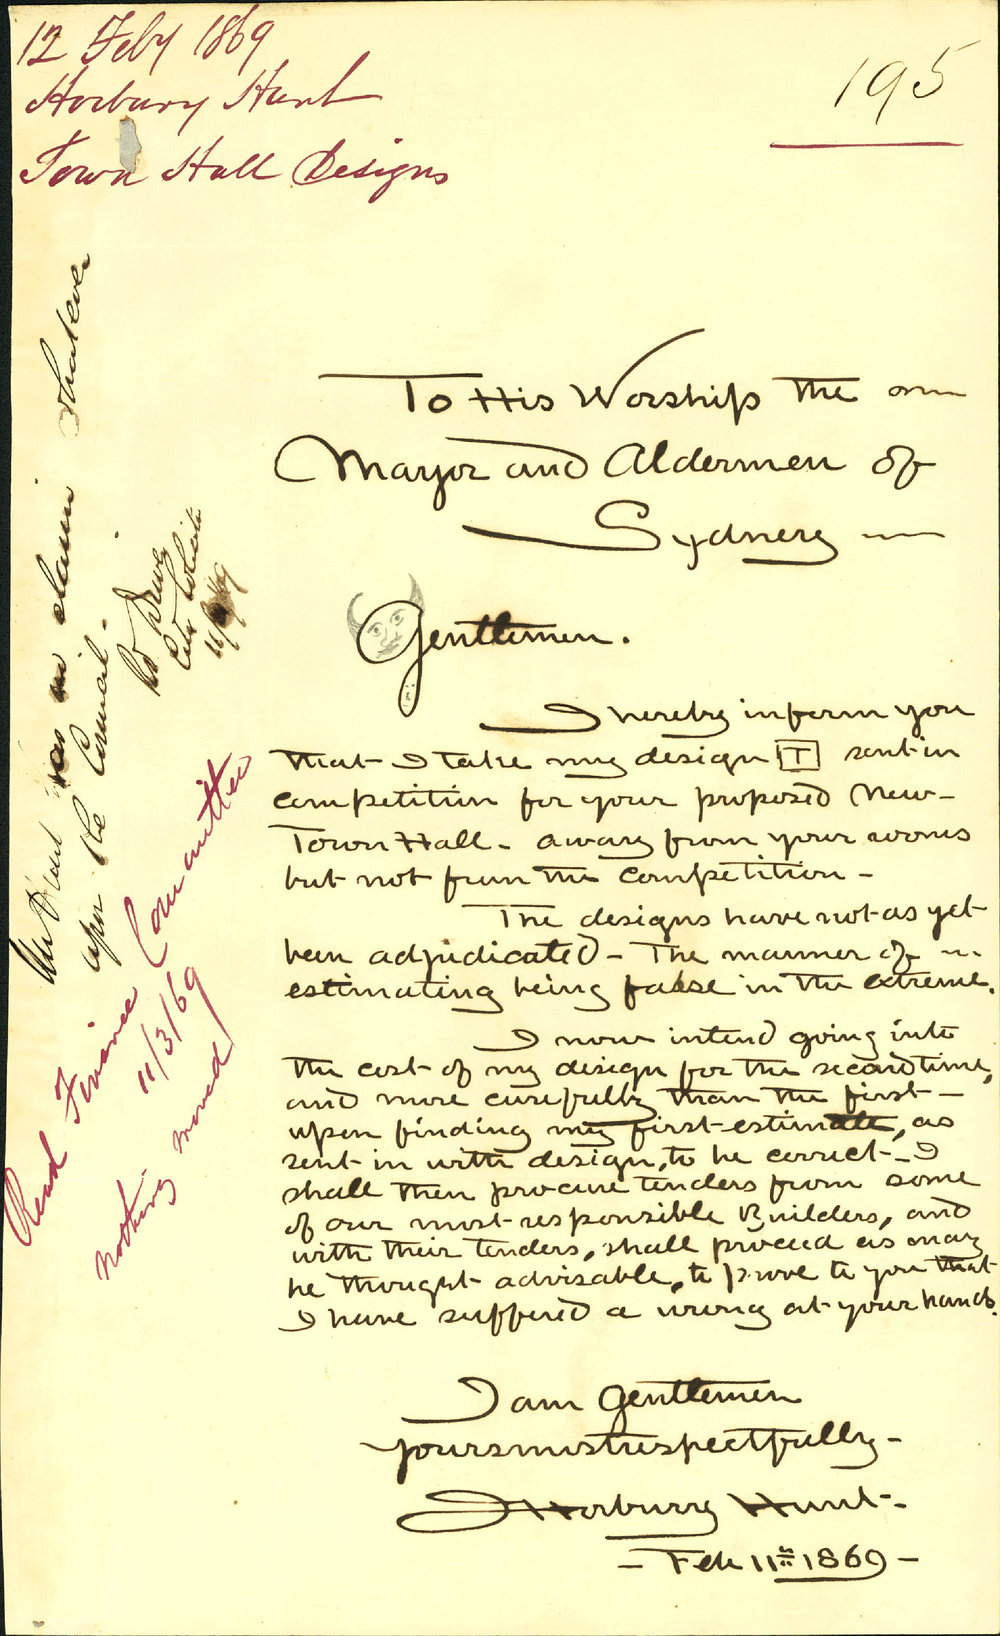 12 Feby 1869
Horbury Hunt
Town Hall Designs
195
To His Worship the
Mayor and Aldermen of
Sydney
Gentlemen.
I hereby inform you
that I take my design [T] sent in
competition for your proposed New-
Town Hall - away from your rooms
but not from the competition -
The designs have not as yet
been adjudicated - The manner of
estimating being false in the extreme.
I now intend going into
the cost of my design for the second time,
and more carefully than the first -
upon finding my first estimate, as
sent in with design, to be correct - I
shall then procure tenders from some
of our most responsible Builders, and
with their tenders, shall proceed as may
be thought advisable, to prove to you that
I have suffered a wrong at your hands.
I am Gentlemen
yours most respectfully -
J Horbury Hunt -
- Feb 11th 1869 -
Mr Hunt has no claim whatever
upon the Council -
City Solicitor
Read Finance Committee
11/3/69
nothing moved